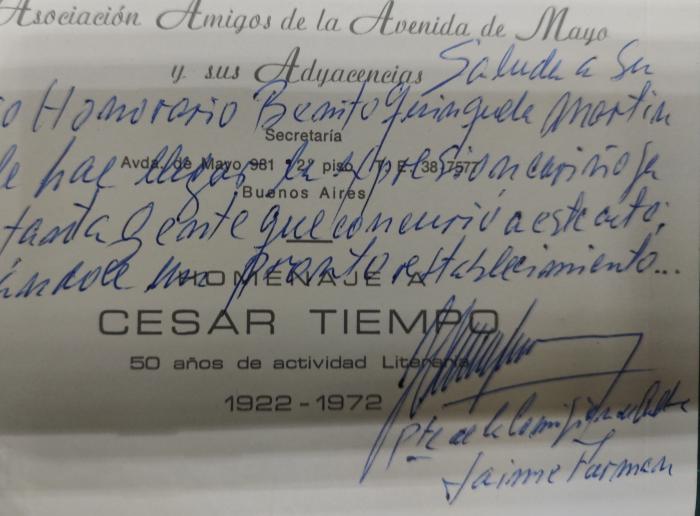 Asociación Amigos de la Avenida de Mayo
y sus Adyacencias
Saluda a Su
o Honorario Benito Quinquela Martin
Secretaría
le hace llegar la expresion cariñosa
Avda. de Mayo 981 2º piso (T. E. 38) 7577
Buenos Aires
tanta Gente que concurrió a este acto;
un pronto restablecimiento...
HOMENAJE A
CESAR TIEMPO
50 años de actividad Literaria
1922 - 1972
Pte de la Comisión de
Jaime Furman